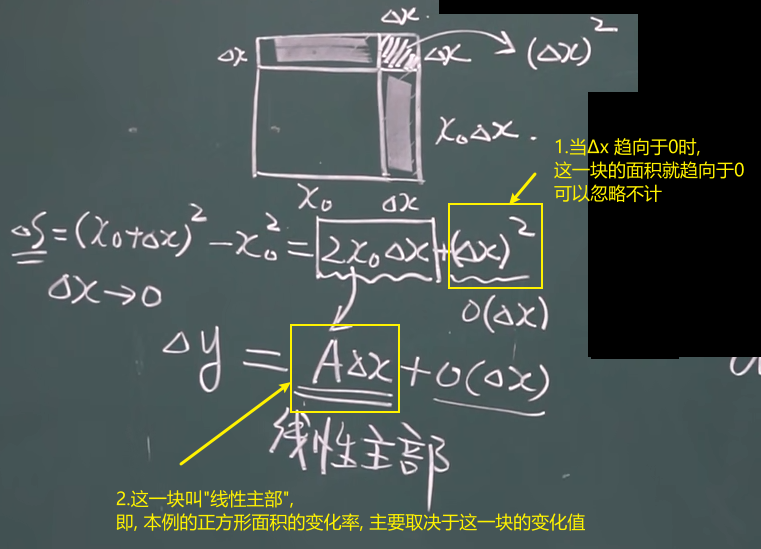 Δx.
Δx
Δx
(Δx)²
x₀Δx.
1.当Δx 趋向于0时,
这一块的面积就趋向于0
可以忽略不计
x₀
Δx
ΔS=(x₀+Δx)²-x₀²=2x₀Δx+(Δx)²
Δx→0
o(Δx)
Δy=AΔx+o(Δx)
线性主部
2.这一块叫"线性主部",
即, 本例的正方形面积的变化率, 主要取决于这一块的变化值